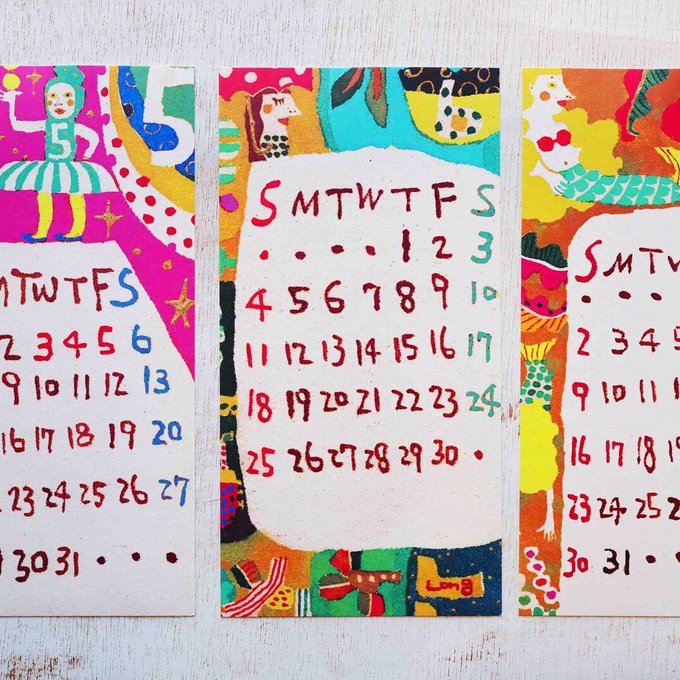 5
5
MTWTFS
2 3 4 5 6
9 10 11 12 13
16 17 18 19 20
23 24 25 26 27
30 31 • • •
6
S M T W T F S
• • • • 1 2 3
4 5 6 7 8 9 10
11 12 13 14 15 16 17
18 19 20 21 22 23 24
25 26 27 28 29 30 •
Long
S M T W
• • •
2 3 4 5
9 10 11
16 17 18 19
23 24 25
30 31 • •